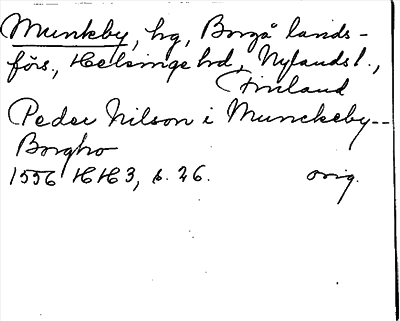 Munkby, hg, Borgå lands-
förs., Helsinge hd, Nylands l.,
Finland
Peder Nilson i Munckeby--
Borgho
1556 HH3, s. 26. orig.